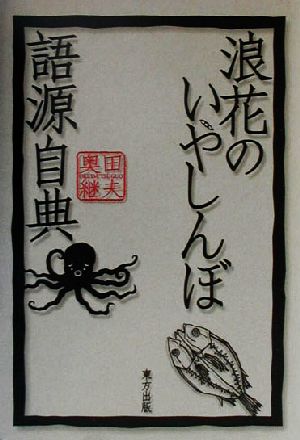 浪花の
いやしんぼ
語源自典
奥田
継夫
東方出版